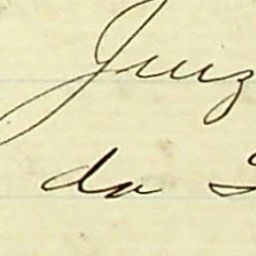 Juiz
da